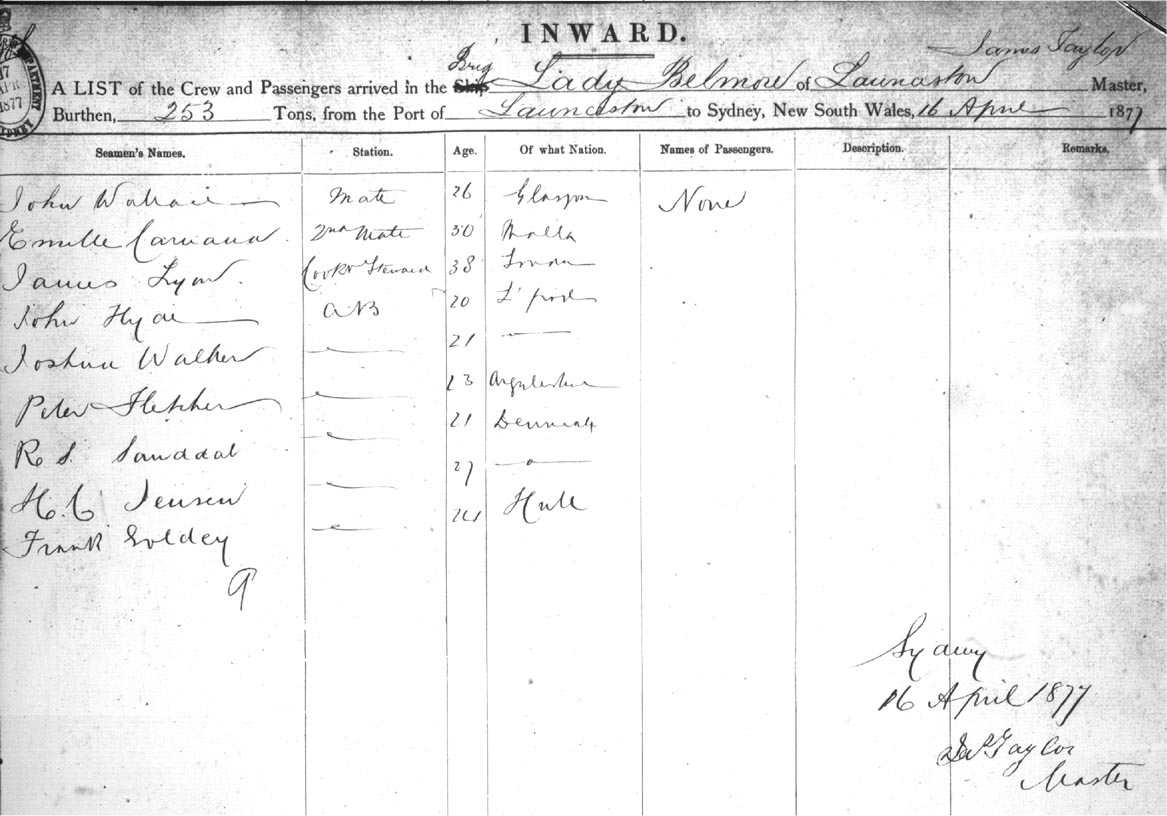 INWARD.
James Taylor
Brig
A LIST of the Crew and Passengers arrived in the Ship Lady Belmore of Launceston Master,
Burthen, 253 Tons, from the Port of Launceston to Sydney, New South Wales, 16 April 1877
Seamen's Names. Station. Age. Of what Nation. Names of Passengers. Description. Remarks.
John Wallace Mate 26 Glasgow None
Emille Caruana 2nd Mate 30 Malta
James Lyon Cook & Steward 38 London
John Hyde AB 20 L'pool
Joshua Walker 21
Peter Fletcher 23 Argyleshire
R S. Sanddal 21 Denmark
H. C Jensen 27
Frank Goldey Hull
9
Sydney
16 April 1877
Jas Taylor
Master
17
APR
1877